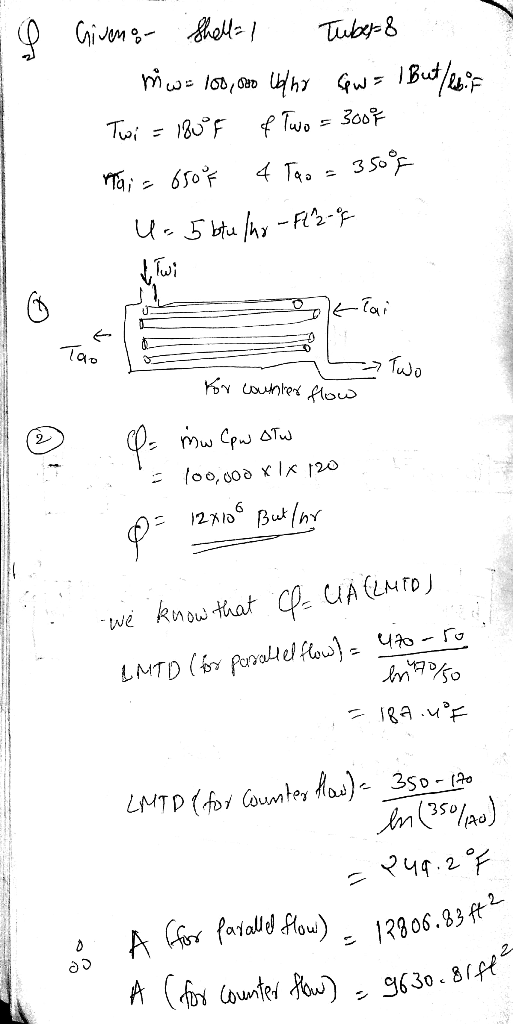 Q Given :- Shell = 1 Tubes = 8
ṁw = 100,000 lb/hr Cpw = 1 But/lb°F
Twi = 180°F & Two = 300°F
Tai = 650°F & Tao = 350°F
U = 5 btu/hr-Ft^2-°F
Twi
①
Tai
Tao
Two
For counter flow
② Q = ṁw Cpw ΔTw
= 100,000 x 1 x 120
Q = 12x10⁶ But/hr
we know that Q = UA(LMTD)
LMTD (for parallel flow) = 470-50 / ln 470/50
= 187.4°F
LMTD (for counter flow) = 350-170 / ln (350/170)
= 249.2°F
∴ A (for parallel flow) = 12806.83 ft²
A (for counter flow) = 9630.81 ft²